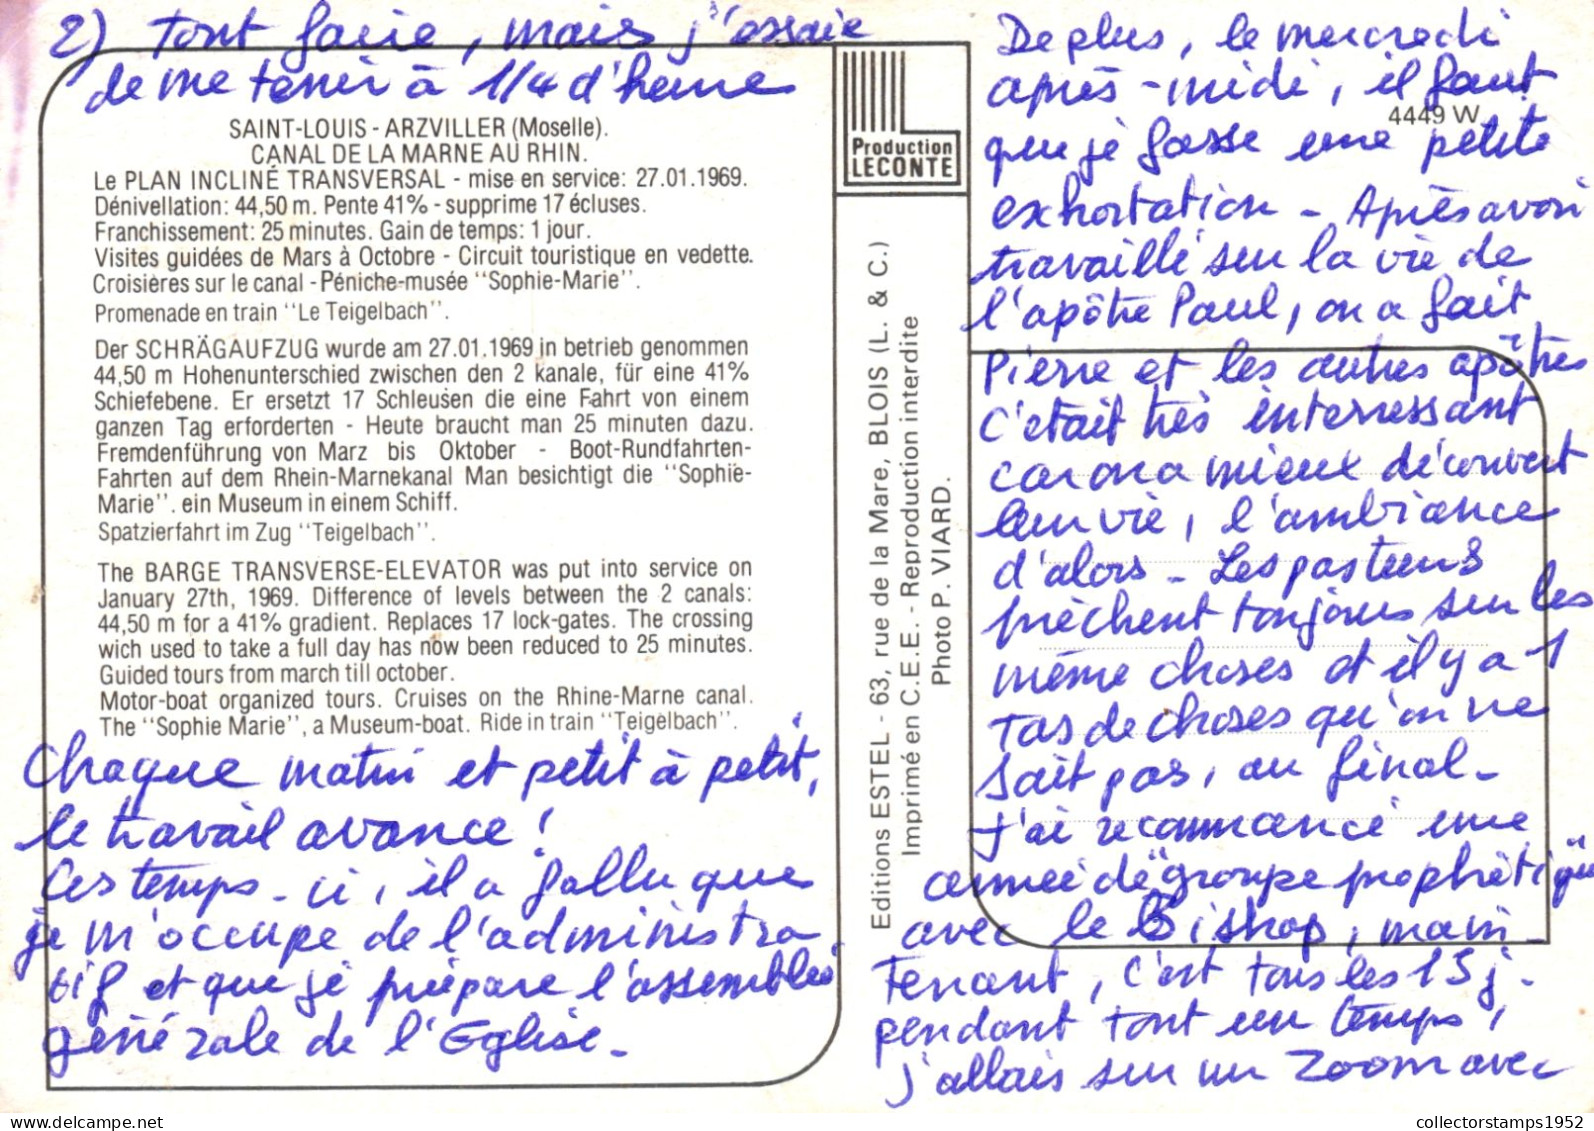 2) Tout faire, mais j'essaie
de me tenir à 1/4 d'heure
SAINT-LOUIS - ARZVILLER (Moselle).
CANAL DE LA MARNE AU RHIN.
Le PLAN INCLINÉ TRANSVERSAL - mise en service: 27.01.1969.
Dénivellation: 44,50 m. Pente 41% - supprime 17 écluses.
Franchissement: 25 minutes. Gain de temps: 1 jour.
Visites guidées de Mars à Octobre - Circuit touristique en vedette.
Croisières sur le canal - Péniche-musée ''Sophie-Marie''.
Promenade en train ''Le Teigelbach''.
Der SCHRÄGAUFZUG wurde am 27.01.1969 in betrieb genommen
44,50 m Hohenunterschied zwischen den 2 kanale, für eine 41%
Schiefebene. Er ersetzt 17 Schleusen die eine Fahrt von einem
ganzen Tag erforderten - Heute braucht man 25 minuten dazu.
Fremdenführung von Marz bis Oktober - Boot-Rundfahrten-
Fahrten auf dem Rhein-Marnekanal Man besichtigt die ''Sophie-
Marie''. ein Museum in einem Schiff.
Spatzierfahrt im Zug ''Teigelbach''.
The BARGE TRANSVERSE-ELEVATOR was put into service on
January 27th, 1969. Difference of levels between the 2 canals:
44,50 m for a 41% gradient. Replaces 17 lock-gates. The crossing
wich used to take a full day has now been reduced to 25 minutes.
Guided tours from march till october.
Motor-boat organized tours. Cruises on the Rhine-Marne canal.
The ''Sophie Marie'', a Museum-boat. Ride in train ''Teigelbach''.
Chaque matin et petit à petit,
le travail avance !
Ces temps-ci, il a fallu que
je m'occupe de l'administra
tif et que je prépare l'assemblée
générale de l'Eglise.
Production
LECONTE
Editions ESTEL - 63, rue de la Mare, BLOIS (L. & C.)
Imprimé en C.E.E. - Reproduction interdite
Photo P. VIARD.
4449 W
De plus, le mercredi
après-midi, il faut
que je fasse une petite
exhortation - Après avoir
travaillé sur la vie de
l'apôtre Paul, on a fait
Pierre et les autres apôtres
C'était très interressant
car on a mieux découvert
leur vie, l'ambiance
d'alors - Les pasteurs
prêchent toujours sur les
même choses et il y a 1
tas de choses qu'on ne
sait pas, au final -
J'ai recommencé une
année de "groupe prophétique"
avec le Bishop, main-
tenant, c'est tous les 15 j.
pendant tout un temps,
j'allais sur un Zoom avec
collectorstamps1952